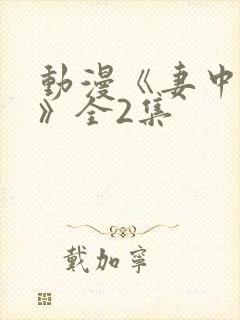 動漫《妻中
》全2集
戴加寧